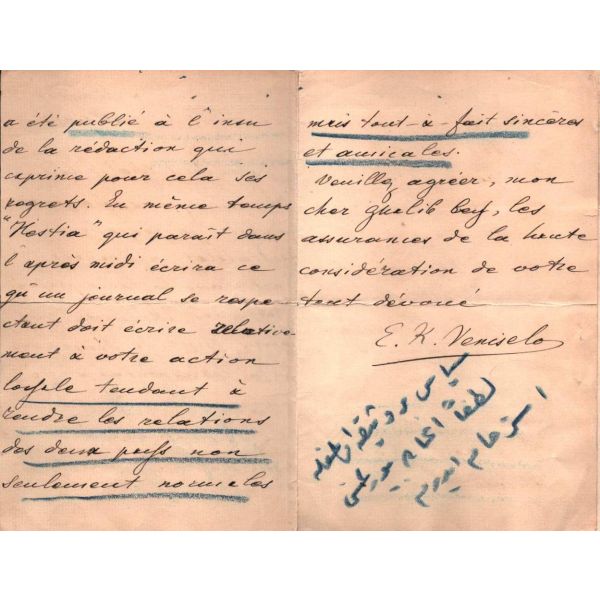 a été publié à l'insu
de la rédaction qui
exprime pour cela ses
regrets. En même temps
"Hestia" qui paraît dans
l'après midi écrira ce
qu'un journal se respe-
ctant doit écrire relative-
ment à votre action
loyale tendant à
rendre les relations
des deux pays non
seulement normales
mais tout-à-fait sincères
et amicales.
Veuillez agréer, mon
cher Ghalib bey, les
assurances de la haute
considération de votre
tout dévoué
E. K. Veniselo
لطفاً
استرحام ايدرم